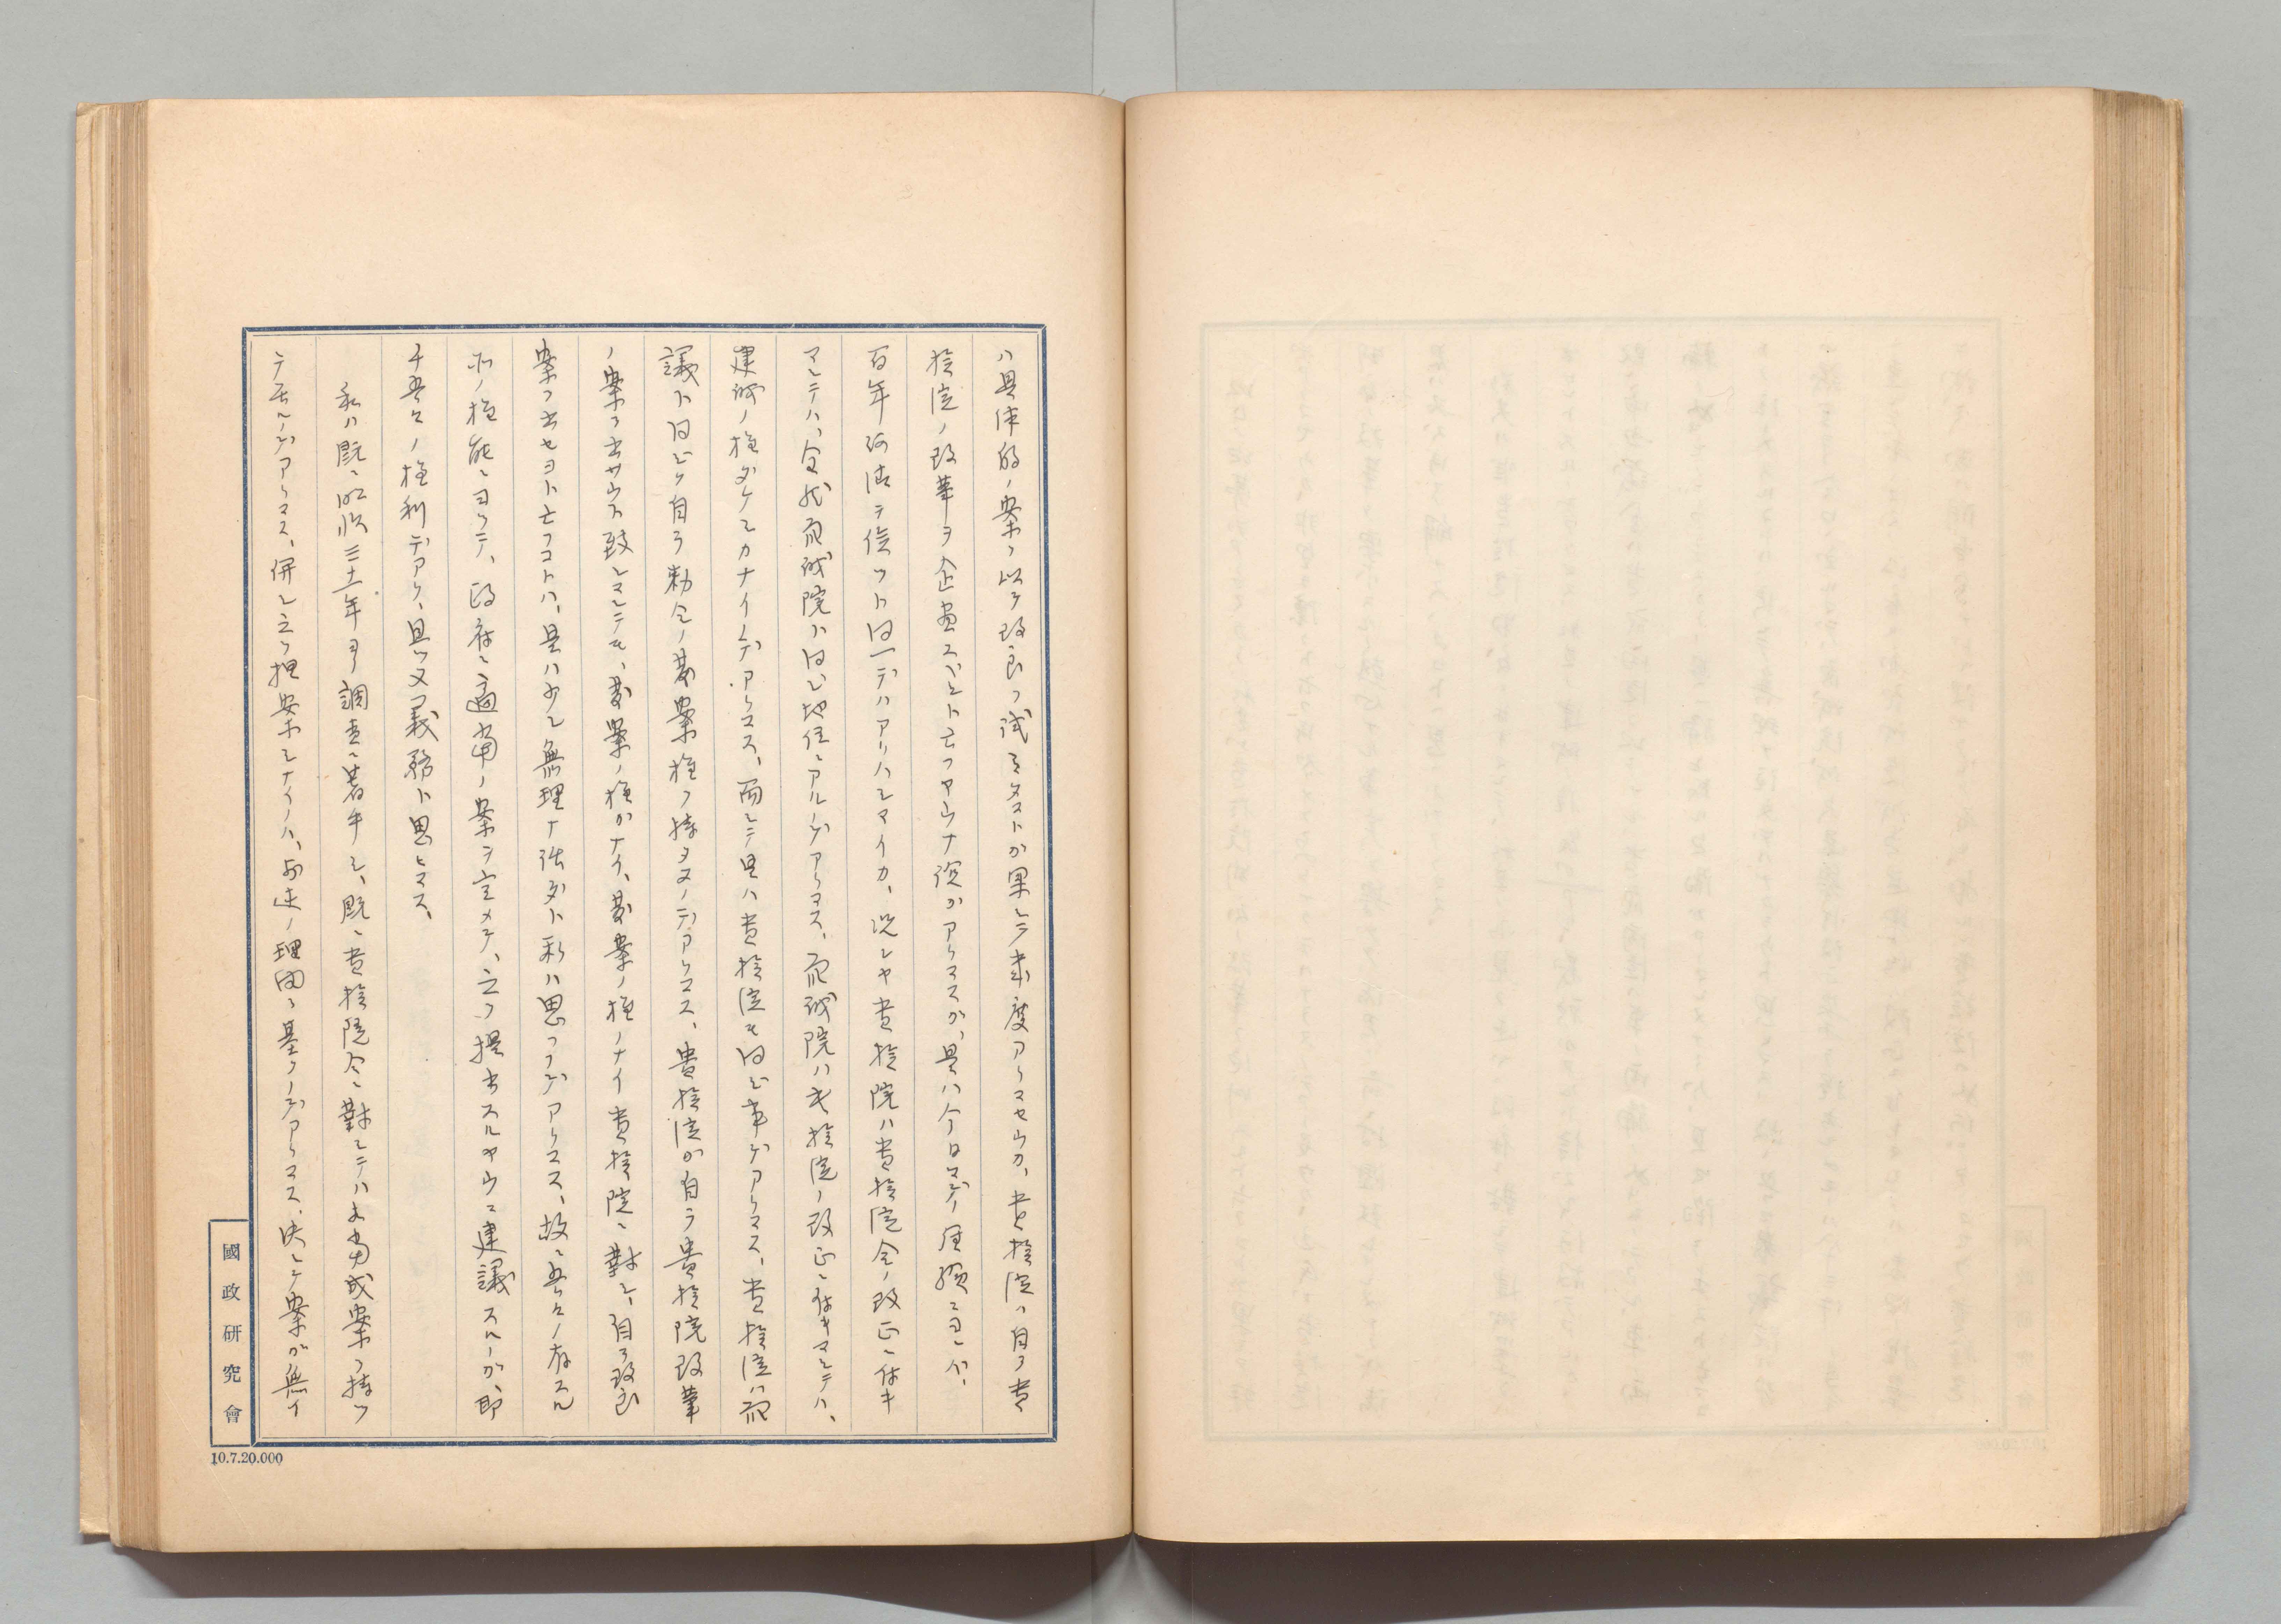 ハ具体的ノ案ヲ以テ改良ヲ試ミタコトガ果シテ幾度アリマセウカ、貴族院ハ自ラ貴
族院ノ改革ヲ企画スベシト云フヤウナ説ガアリマスガ、是ハ今日マデノ経験ニヨレバ、
百年河清ヲ俟ツト同一デハアリハシマイカ、況シヤ貴族院ハ貴族院令ノ改正ニ付キ
マシテハ、全然衆議院ト同ジ地位ニアルノデアリマス、衆議院ハ貴族院ノ改正ニ付キマシテハ、
建議ノ権ダケシカナイノデアリマス、而シテ是ハ貴族院モ同ジ事デアリマス、貴族院ハ衆
議ト同ジク自ラ勅令ノ発案権ヲ持タヌノデアリマス、貴族院ガ自ラ貴族院改革
ノ案ヲ出サウト致シマシテモ、発案ノ権ガナイ、発案ノ権ノナイ貴族院ニ対シ、自ラ改良
案ヲ出セヨト云フコトハ、是ハ少シ無理ナ注文ト私ハ思フノデアリマス、故ニ吾々ノ有スル
所ノ権能ニヨツテ、政府ニ適当ノ案ヲ定メテ、之ヲ提出スルヤウニ建議スルノガ、即
チ吾々ノ権利デアリ、且ツ又義務ト思ヒマス、
私ハ既ニ明治三十二年ヨリ調査ニ着手シ、既ニ貴族院令ニ対シテハ相当成案ヲ持ツ
テヰルノデアリマス、併シ之ヲ提案シナイノハ、前述ノ理由ニ基クノデアリマス、決シテ案ガ無イ
國政研究會
10.7.20.000